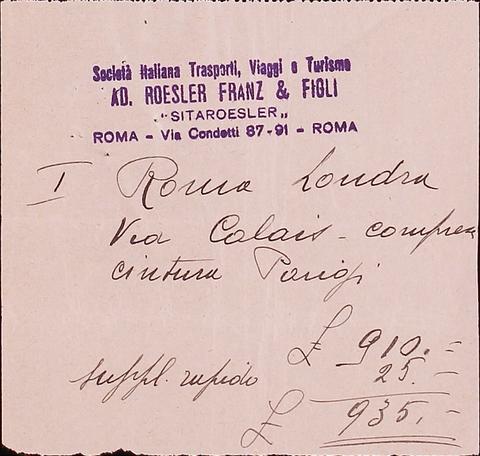 Società Italiana Trasporti, Viaggi e Turismo
AD. ROESLER FRANZ & FIGLI
"SITAROESLER„
ROMA - Via Condotti 87-91 - ROMA
I Roma Londra
Via Calais - compresa
cintura Parigi
£ 910.=
suppl. rapido 25.=
£ 935.-